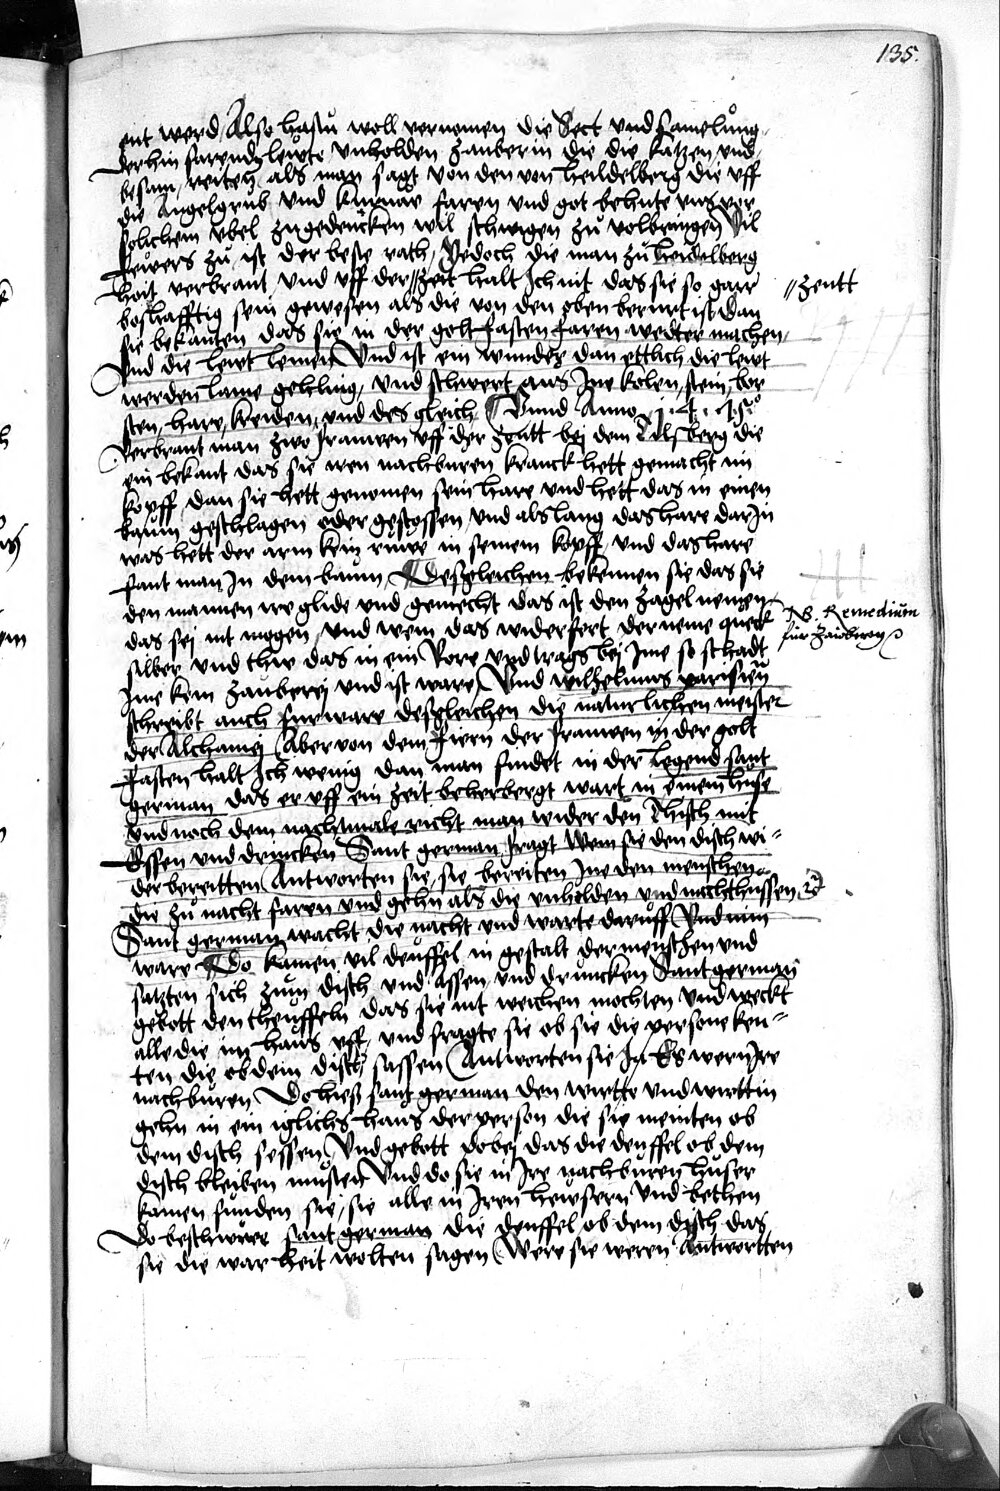 135.
ent werd / Also hastu woll vernomen die Sect und samelung
der hin farendn lewte unholden zauberin die die katzen und
besam reiten als man sagt von den von heildelberg die uff
die Angelgrub und kurnaw faren und got behute uns vor
solichem ubel zugedencken wil schwigen zu volbringen Vil
fewers zu ist der beste rath / Yedoch die man zu heidelberg
hott verbrant und uff der // zeit halt Ich nit das sie so garr
boshafftig sein gewesen als die von den oben berurt ist dan
sie bekanten das sie in der golt fasten faren wedter machen
Und die lewt lemen Und ist ein wunder dan ettlich die lewt
werden lame gehling, und schwert aus Ime kolen, stein, bor
sten, hare, kreiden, und des gleich Unnd Anno 1.4.
Verbrant man zwo frauwen uff der zentt bej dem Dilsberg die
ein bekant das sie iren nachburen kranck hett gemacht im
kopff, dan sie hett genomen sein hare und hett das in einen
baum geschlagen oder gestossen und als lang das hare dar In
was hett der arm kein ruwe in seinem kopff, und das hare
fant man In dem baum, Desgleichen bekennen sie das sie
den mannen ire glide und gemecht das ist den zagel nemen
das sej nit mogen, und wem das widerfert der neme queck
silber und thw das in ein Rore und trags bej Ime so schadt
Ime kein zauberej und ist ware, Und wilhelmus parisien
schreibt auch furware desgleichen die naturlichen meister
der Alchamej Aber von dem fiern der frauwen in der golt
fasten halt Ich wenig dan man findet in der legend sant
german das er uff ein zeit beherbergt wart in einem huse
und noch dem nachtmale richt man wider den Thisch mit
Essen und drincken Sant german fragt Wem sie den disch wi=
der bereitten Antworten sie, sie bereiten Ine den menschen
die zu nacht faren und gehn als die unholden und nachthussen
Sant german wacht die nacht und warte daruff Und nim
ware Do kamen vil deuffel in gestalt der menschen und
satzten sich zum disch und Assen und druncken Sant german
gebott den theuffeln das sie nit weichen mochten und weckt
alle die im haus uff, und fragte sie ob sie die persone ken=
ten die ob dem disch sassen Antworten sie Ja Es wern Ire
nachburen, Do hies sant german den wirtte und wirttin
gehn in ein iglichs haus der person die sie meinten ob
dem disch sessen Und gebott dobej das die deuffel ob dem
disch bleiben musten Und do sie in Ire nachburen huser
kamen funden sie, sie alle in Iren hewsern und bethen
Do beschwure sant german die deuffel ob dem disch das
sie die warheit wolten sagen Were sie weren Antwortten
// zentt
NB. Remedium
für zauberey